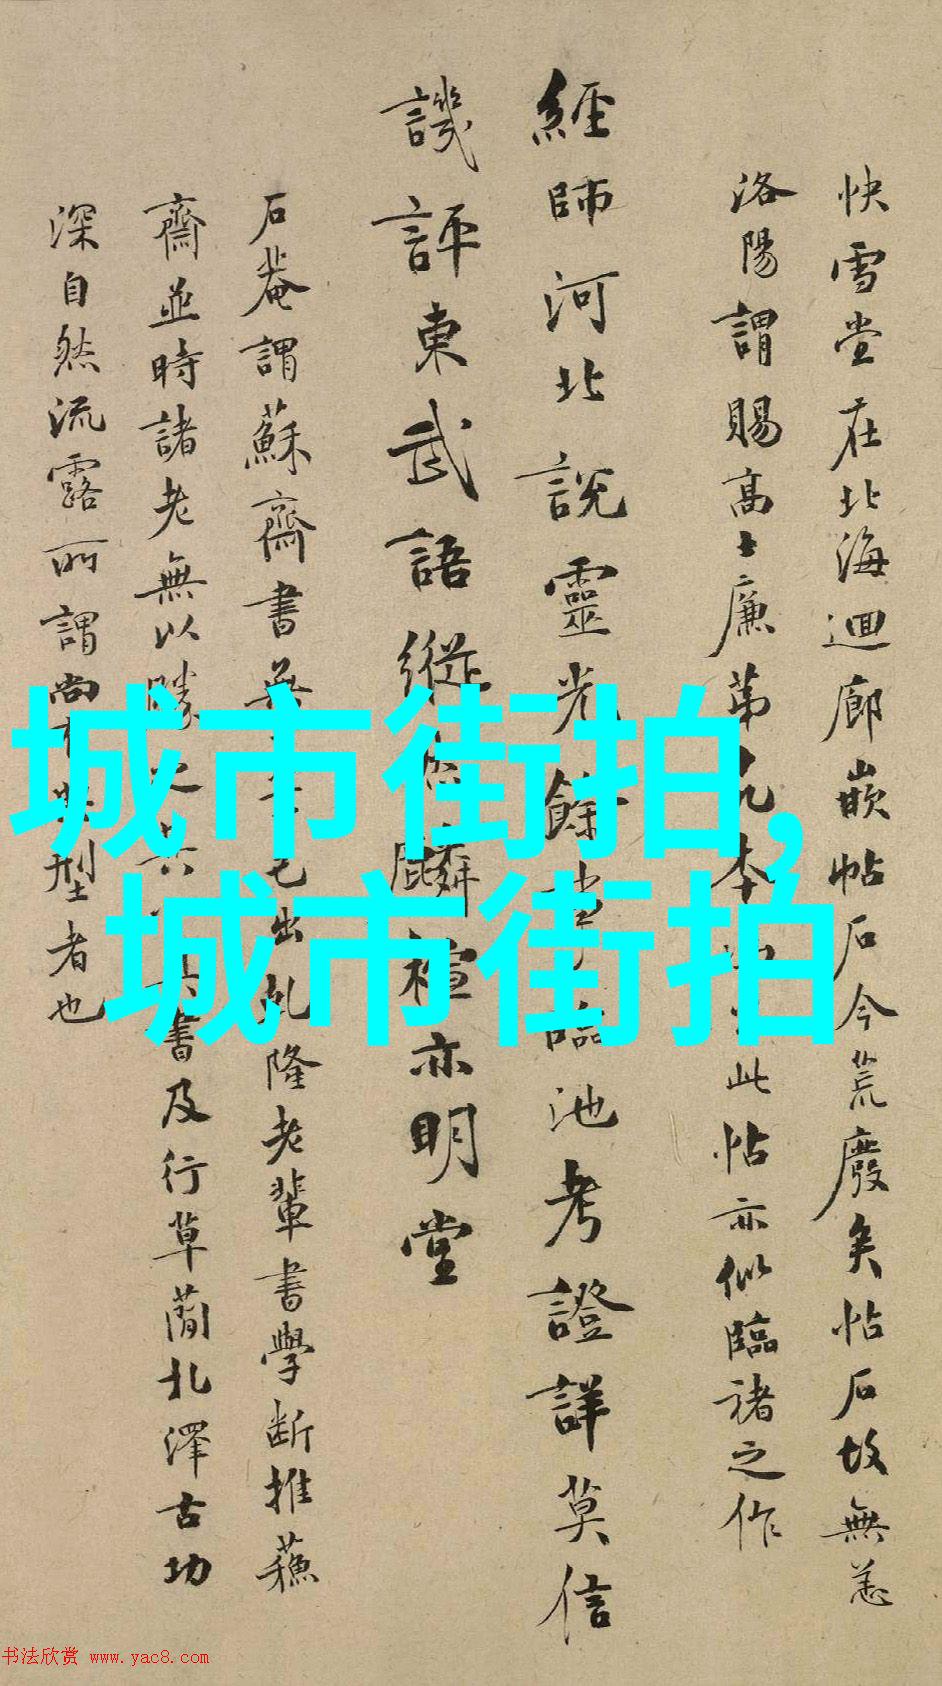 快雪堂在北海迴廊嵌帖石今荒廢矣帖石故無恙
洛陽謂賜高士廉第九本此帖亦似臨褚之作
經師河北說靈光餘事臨池考證詳莫信
譏評東武語縱橫麟楦亦明堂
石菴謂蘇齋書無一筆已出乾隆老輩書學斷推蘇
齋並時諸老無以勝之其書及行草蘭北澤古功
深自然流露所謂尚有典型者也
城市街拍,
城市街拍
书法欣赏 www.yac8.com